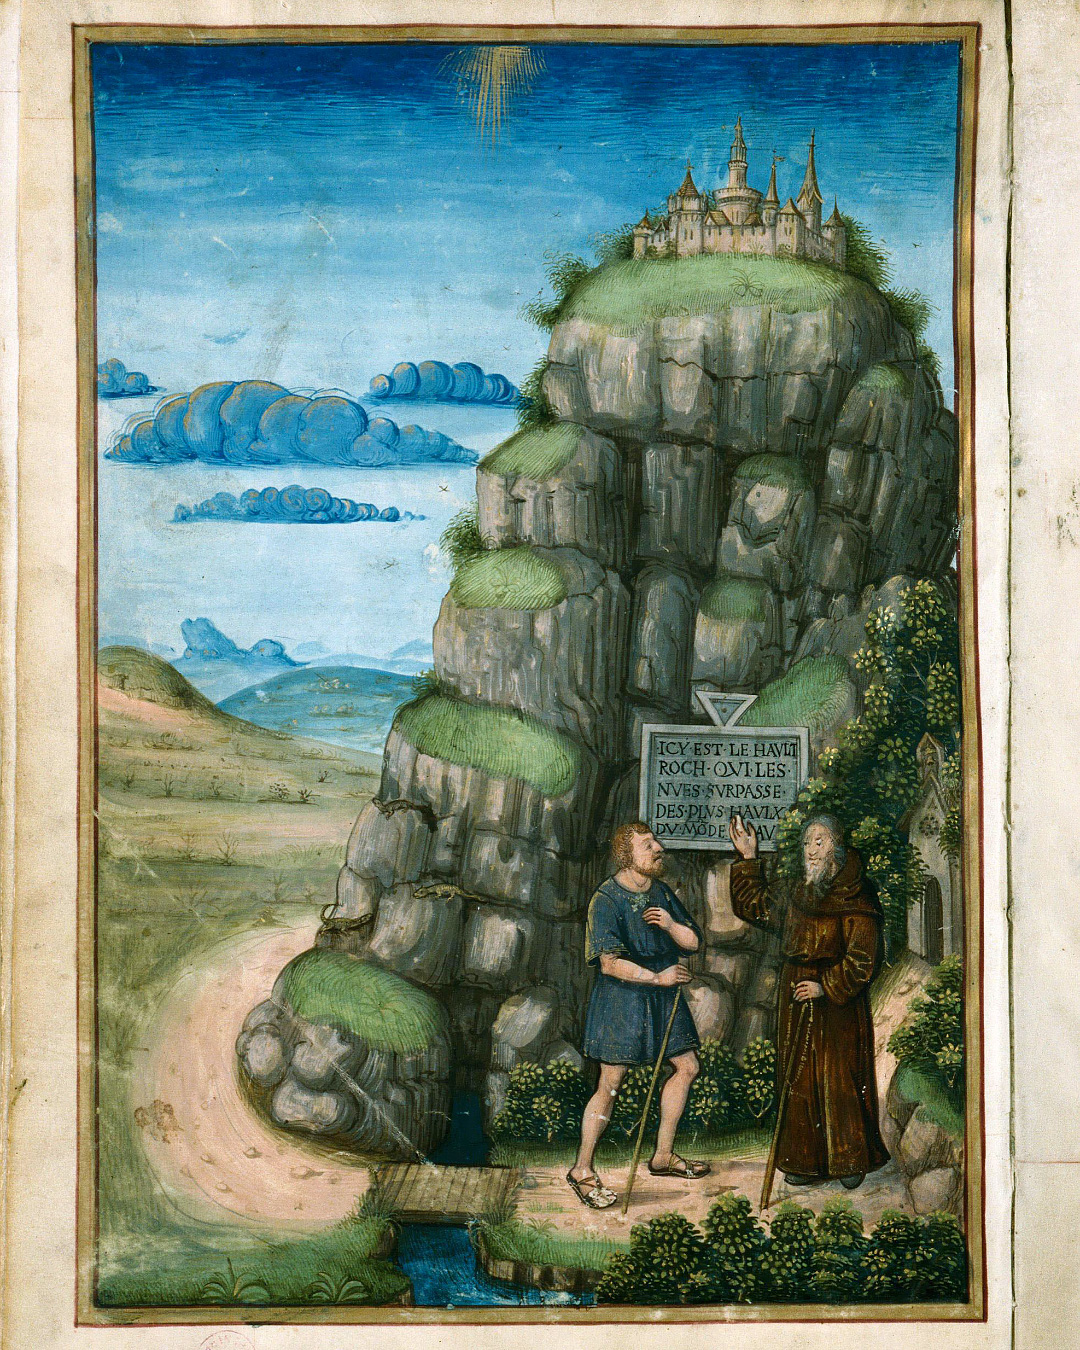 ICY·EST·LE·HAVLT
ROCH·QVI·LES·
NVES·SVRPASSE·
DES·PLVS·HAVLX
DV·MŌDE